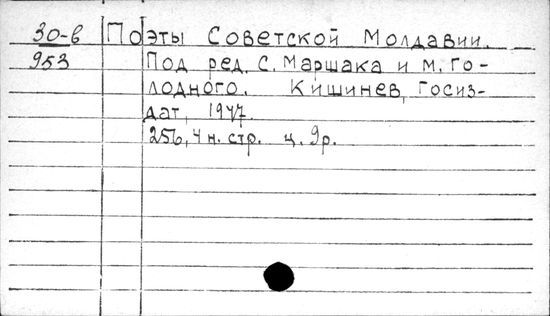 30-в Поэты Советской Молдавии.
953 Под ред. С. Маршака и М. Го-
лодного. Кишинев, Госиз-
дат, 1947.
256, 4 н. стр. ц. 9р.